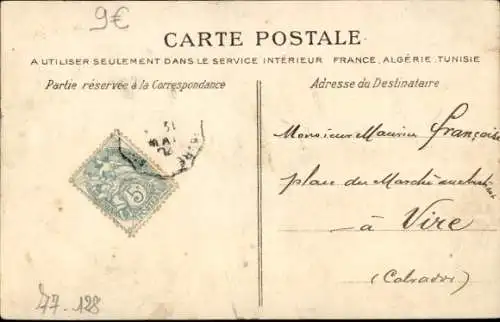 9€
CARTE POSTALE
A UTILISER SEULEMENT DANS LE SERVICE INTÉRIEUR FRANCE, ALGÉRIE, TUNISIE
Partie réservée à la Correspondance
Adresse du Destinataire
Monsieur Maurice Françoise
place du Marché
à Vire
(Calvados)
5
77-128